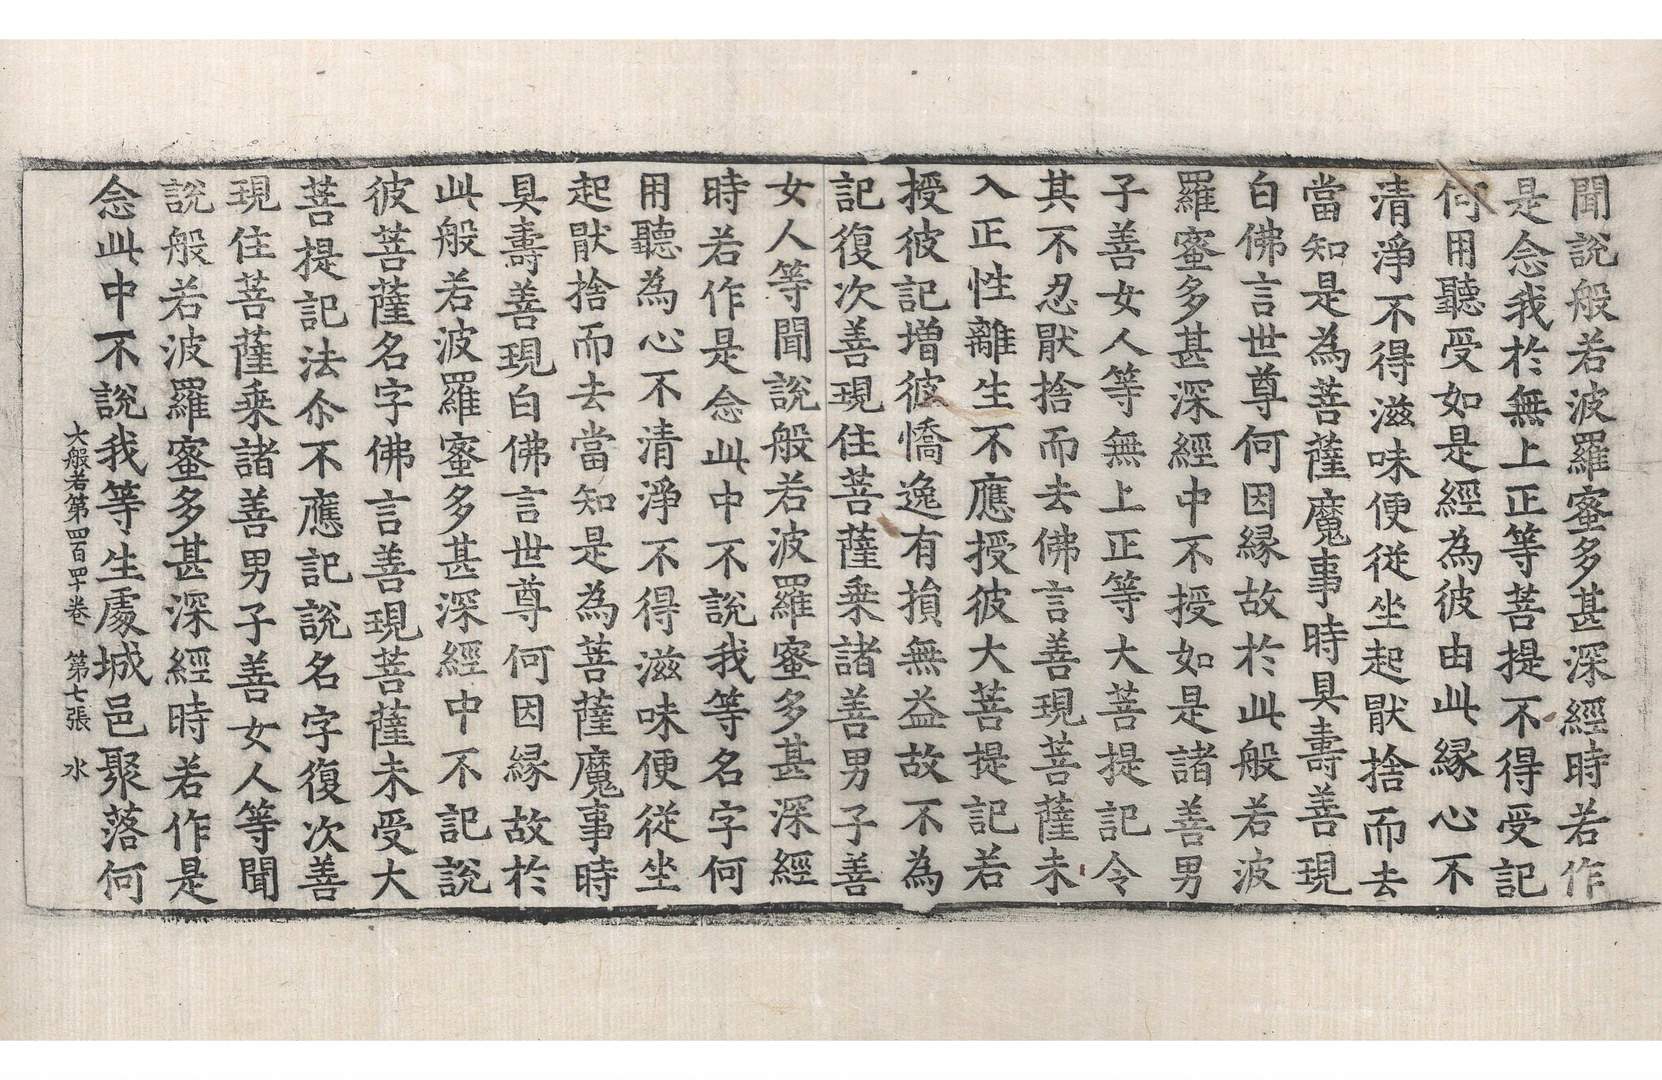 聞說般若波羅蜜多甚深經時若作
是念我於無上正等菩提不得受記
何用聽受如是經為彼由此緣心不
清淨不得滋味便從坐起猒捨而去
當知是為菩薩魔事時具壽善現
白佛言世尊何因緣故於此般若波
羅蜜多甚深經中不授如是諸善男
子善女人等無上正等大菩提記令
其不忍猒捨而去佛言善現菩薩未
入正性離生不應授彼大菩提記若
授彼記增彼憍逸有損無益故不為
記復次善現住菩薩乘諸善男子善
女人等聞說般若波羅蜜多甚深經
時若作是念此中不說我等名字何
用聽為心不清淨不得滋味便從坐
起猒捨而去當知是為菩薩魔事時
具壽善現白佛言世尊何因緣故於
此般若波羅蜜多甚深經中不記說
彼菩薩名字佛言善現菩薩未受大
菩提記法尒不應記說名字復次善
現住菩薩乘諸善男子善女人等聞
說般若波羅蜜多甚深經時若作是
念此中不說我等生處城邑聚落何
大般若第四百四十卷 第七張 水